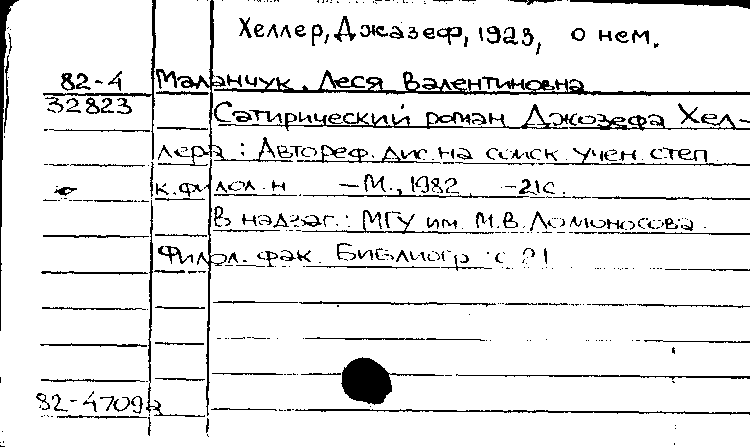 Хеллер, Джазеф, 1923, о нем.
82-4 Маланчук, Леся Валентиновна
32823 Сатирический роман Джозефа Хел-
лера : Автореф. дис. на соиск. учен. степ.
к. филол. н – М., 1982 – 21с.
В надзаг.: МГУ им. М.В. Ломоносова.
Филол. фак. Библиогр.: с 21
82-4709а